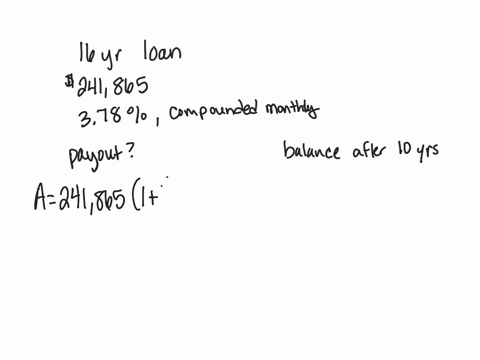 16 yr loan
$241,865
3.78%, compounded monthly
payout? balance after 10 yrs
A=241,865 (1+